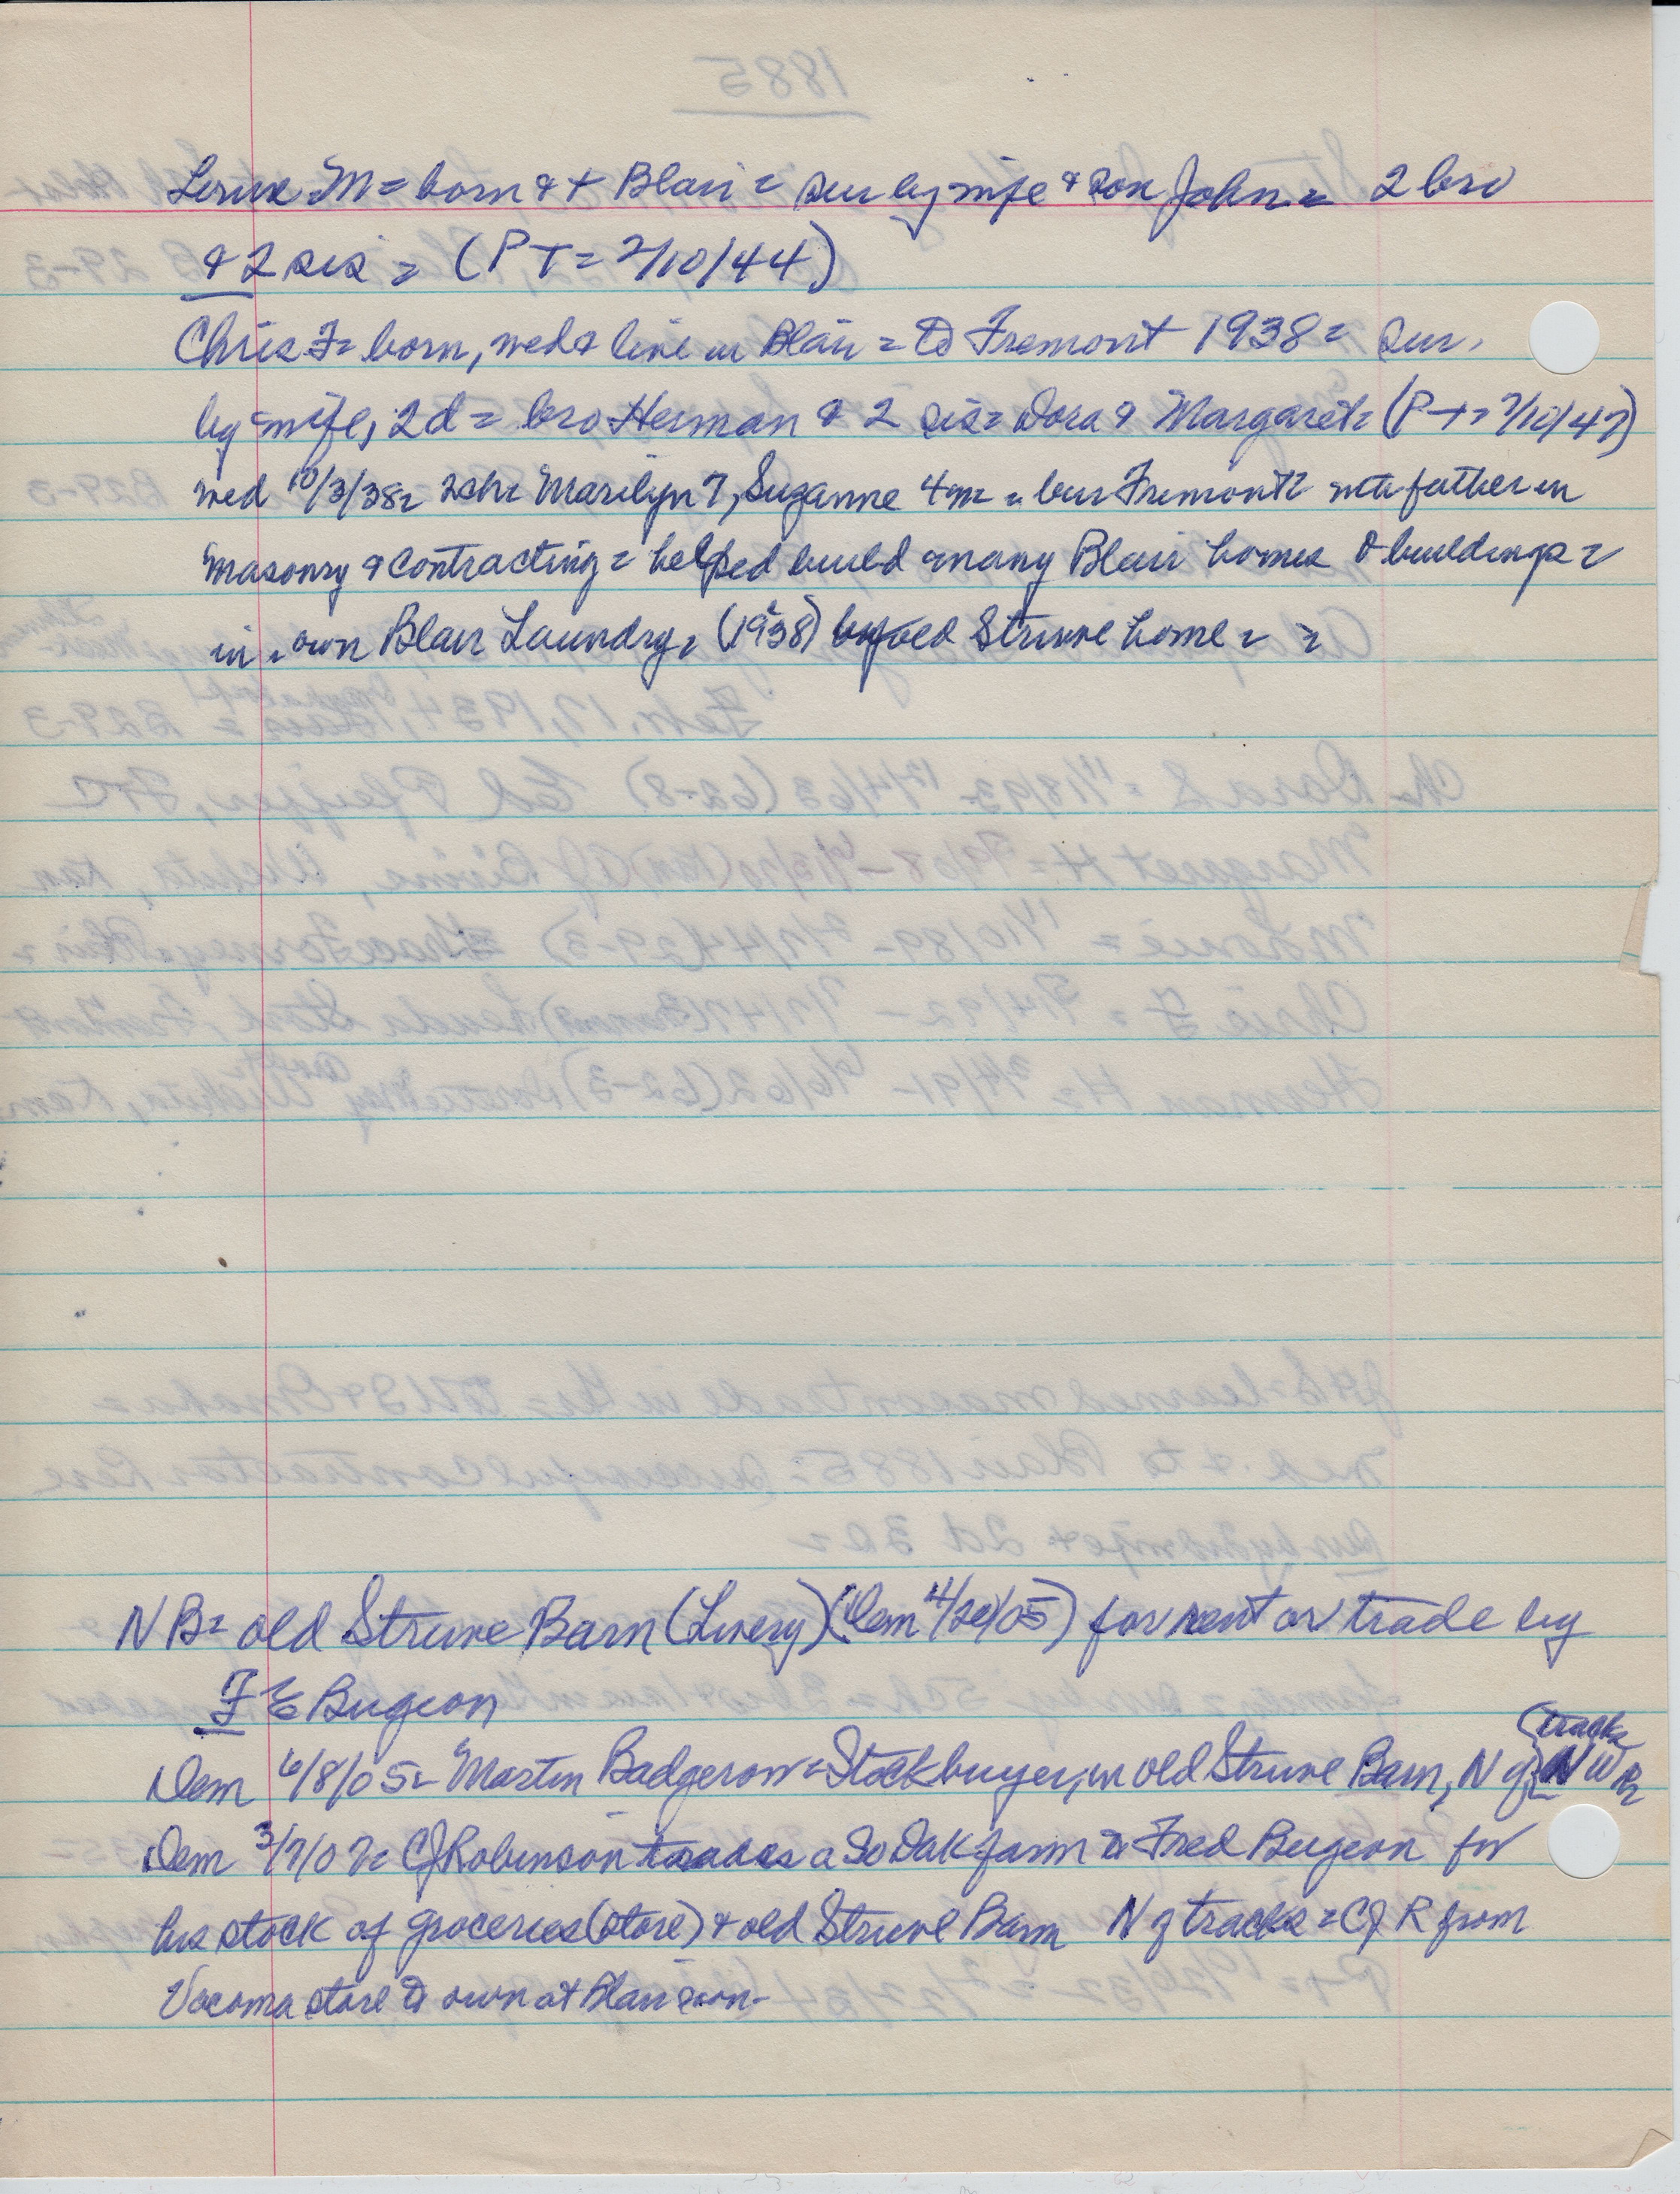 M = born & + Blair = sur by wife & son John = 2 bro
& 2 sis = (PT = 2/10/44)
Chris F = born, wed & live in Blair = to Fremont 1938 = sur.
by wife, 2d = bro Herman & 2 sis = Dora & Margaret = (P+ = 7/10/47)
wed 10/3/38 = 2ch = Marilyn 7, Suzanne 4m = bur Fremont = with father in
Masonry & contracting = helped build many Blair homes & buildings =
in = own Blair Laundry, (1938) old Struve home = =
NB = old Struve Barn (Livery) (Dem 4/20/05) for rent or trade by
F E Bugeon
Dem 6/8/05 = Martin Badgerow = Stockbuyer, in old Struve Barn, N of (tracks NW R
Dem 3/7/07 = CJ Robinson trades a So Dak farm to Fred Bugeon for
his stock of groceries (store) & old Struve Barn N of tracks = CJ R from
Vacoma store to own at Blair soon -